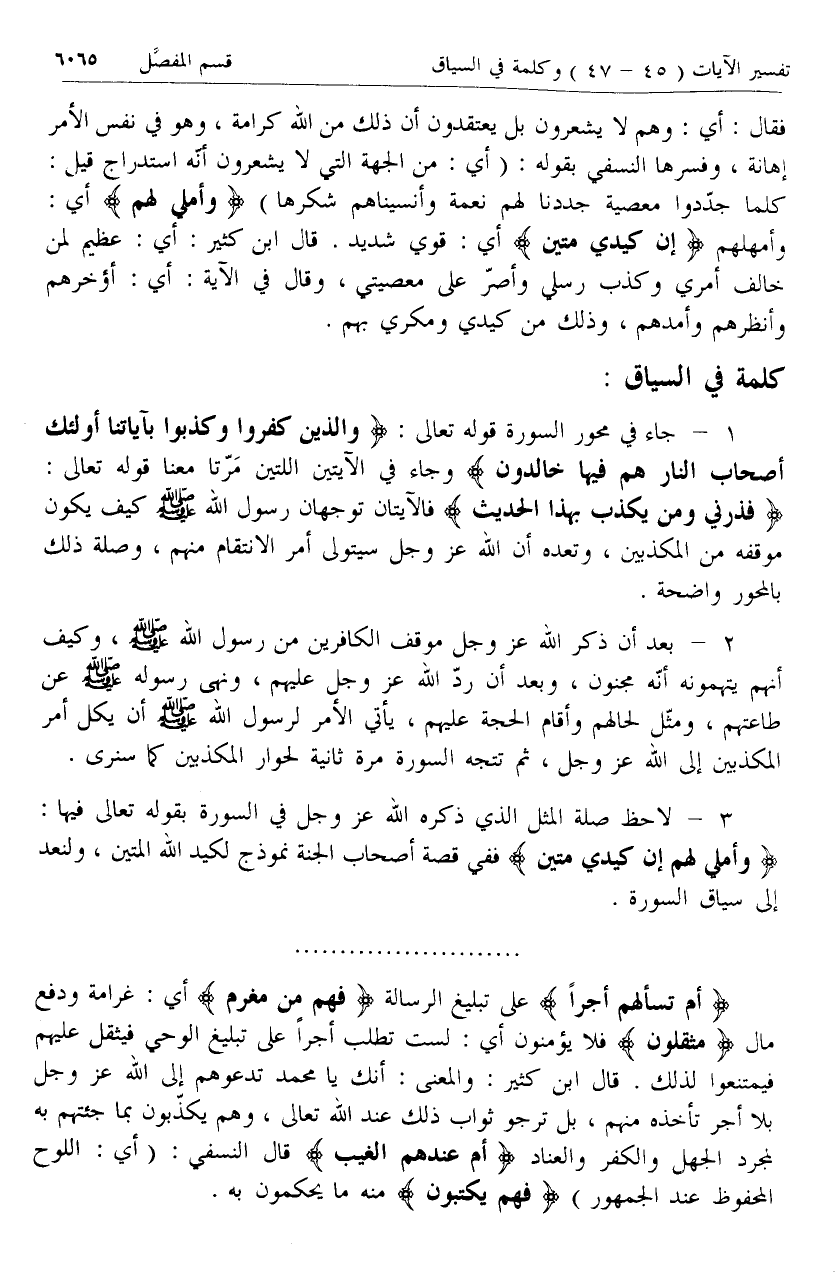 تفسير الآيات ( ٤٥ – ٤٧ ) وكلمة في السياق قسم المفصَّل ٦٠٦٥
فقال : أي : وهم لا يشعرون بل يعتقدون أن ذلك من الله كرامة ، وهو في نفس الأمر
إهانة ، وفسرها النسفي بقوله : ( أي : من الجهة التي لا يشعرون أنّه استدراج قيل :
كلما جدّدوا معصية جددنا لهم نعمة وأنسيناهم شكرها ) ﴿ وأملي لهم ﴾ أي :
وأمهلهم ﴿ إن كيدي متين ﴾ أي : قوي شديد . قال ابن كثير : أي : عظيم لمن
خالف أمري وكذب رسلي وأصرّ على معصيتي ، وقال في الآية : أي : أؤخرهم
وأنظرهم وأمدهم ، وذلك من كيدي ومكري بهم .
كلمة في السياق :
١ – جاء في محور السورة قوله تعالى : ﴿ والذين كفروا وكذبوا بآياتنا أولئك
أصحاب النار هم فيها خالدون ﴾ وجاء في الآيتين اللتين مَرّتا معنا قوله تعالى :
﴿ فذرني ومن يكذب بهذا الحديث ﴾ فالآيتان توجهان رسول الله ﷺ كيف يكون
موقفه من المكذبين ، وتعده أن الله عز وجل سيتولى أمر الانتقام منهم ، وصلة ذلك
بالمحور واضحة .
٢ – بعد أن ذكر الله عز وجل موقف الكافرين من رسول الله ﷺ ، وكيف
أنهم يتهمونه أنّه مجنون ، وبعد أن ردّ الله عز وجل عليهم ، ونهى رسوله ﷺ عن
طاعتهم ، ومثّل لحالهم وأقام الحجة عليهم ، يأتي الأمر لرسول الله ﷺ أن يكل أمر
المكذبين إلى الله عز وجل ، ثم تتجه السورة مرة ثانية لحوار المكذبين كما سنرى .
٣ – لاحظ صلة المثل الذي ذكره الله عز وجل في السورة بقوله تعالى فيها :
﴿ وأملي لهم إن كيدي متين ﴾ ففي قصة أصحاب الجنة نموذج لكيد الله المتين ، ولنعد
إلى سياق السورة .
........................
﴿ أم تسألهم أجراً ﴾ على تبليغ الرسالة ﴿ فهم من مغرم ﴾ أي : غرامة ودفع
مال ﴿ مثقلون ﴾ فلا يؤمنون أي : لست تطلب أجراً على تبليغ الوحي فيثقل عليهم
فيمتنعوا لذلك . قال ابن كثير : والمعنى : أنك يا محمد تدعوهم إلى الله عز وجل
بلا أجر تأخذه منهم ، بل ترجو ثواب ذلك عند الله تعالى ، وهم يكذّبون بما جئتهم به
لمجرد الجهل والكفر والعناد ﴿ أم عندهم الغيب ﴾ قال النسفي : ( أي : اللوح
المحفوظ عند الجمهور ) ﴿ فهم يكتبون ﴾ منه ما يحكمون به .